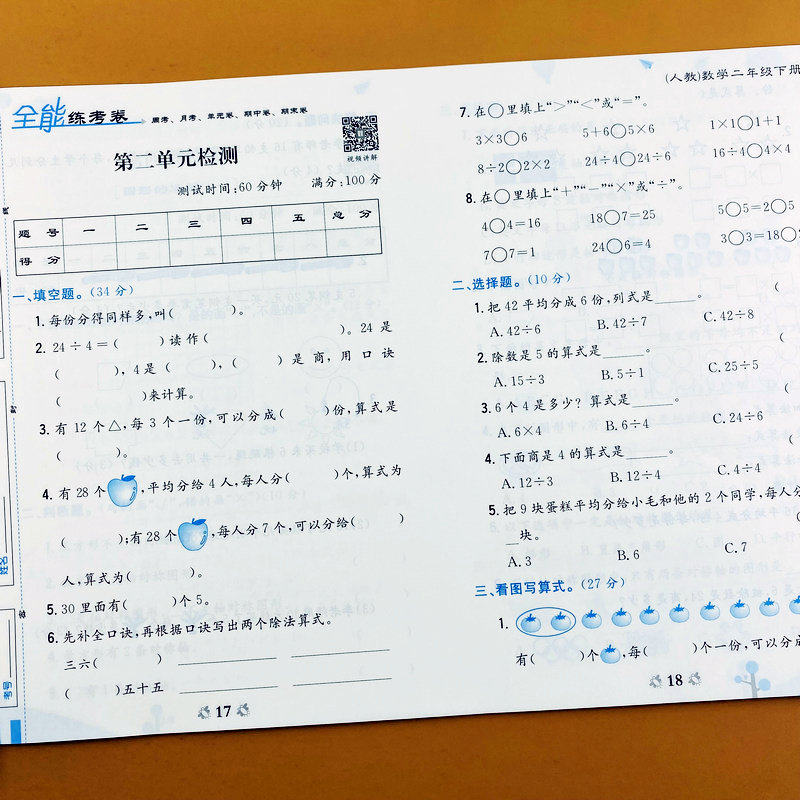 全能练考卷 周考、月考、单元卷、期中卷、期末卷
第二单元检测
视频讲解
测试时间:60分钟 满分:100分
题 号 一 二 三 四 五 总 分
得 分
一、填空题。(34分)
1. 每份分得同样多,叫( )。
2. 24÷4=( )读作( )。24是
( ),4是( ),( )是商,用口诀
( )来计算。
3. 有12个△,每3个一份,可以分成( )份,算式是
( )。
4. 有28个 ,平均分给4人,每人分( )个,算式为
( );有28个 ,每人分7个,可以分给( )
人,算式为( )。
5. 30里面有( )个5。
6. 先补全口诀,再根据口诀写出两个除法算式。
三六( )
( )五十五
17
姓名
考号
(人教)数学二年级下册
7. 在○里填上“>”“<”或“=”。
3×3○6 5+6○5×6 1×1○1+1
8÷2○2×2 24÷4○24÷6 16÷4○4×4
8. 在○里填上“+”“-”“×”或“÷”。
4○4=16 18○7=25 5○5=2○5
7○7=1 24○6=4 3○3=18○
二、选择题。(10分)
1. 把42平均分成6份,列式是 。 (
A. 42÷6 B. 42÷7 C. 42÷8
2. 除数是5的算式是 。 (
A. 15÷3 B. 5÷1 C. 25÷5
3. 6个4是多少?算式是 。 (
A. 6×4 B. 6÷4 C. 24÷6
4. 下面商是4的算式是 。 (
A. 12÷3 B. 12÷4 C. 4÷4
5. 把9块蛋糕平均分给小毛和他的2个同学,每人分
块。
A. 3 B. 6 C. 7
三、看图写算式。(27分)
1.
有( )个 ,每( )个一份,可以分成
18